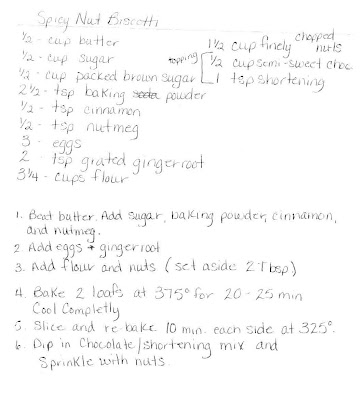 Spicy Nut Biscotti
1/2 - cup butter
1/2 - cup sugar
1/2 - cup packed brown sugar
2 1/2 - tsp baking soda powder
1/2 - tsp cinnamon
1/2 - tsp nutmeg
3 - eggs
2 - tsp grated gingerroot
3 1/4 - cups flour
1 1/2 cup finely chopped nuts
topping
1/2 cup semi-sweet choc.
1 tsp shortening
1. Beat butter. Add sugar, baking powder, cinnamon,
and nutmeg.
2. Add eggs + gingerroot
3. Add flour and nuts (set aside 2 Tbsp)
4. Bake 2 loafs at 375° for 20-25 min
Cool Completly
5. Slice and re-bake 10 min. each side at 325°.
6. Dip in Chocolate/shortening mix and
Sprinkle with nuts.